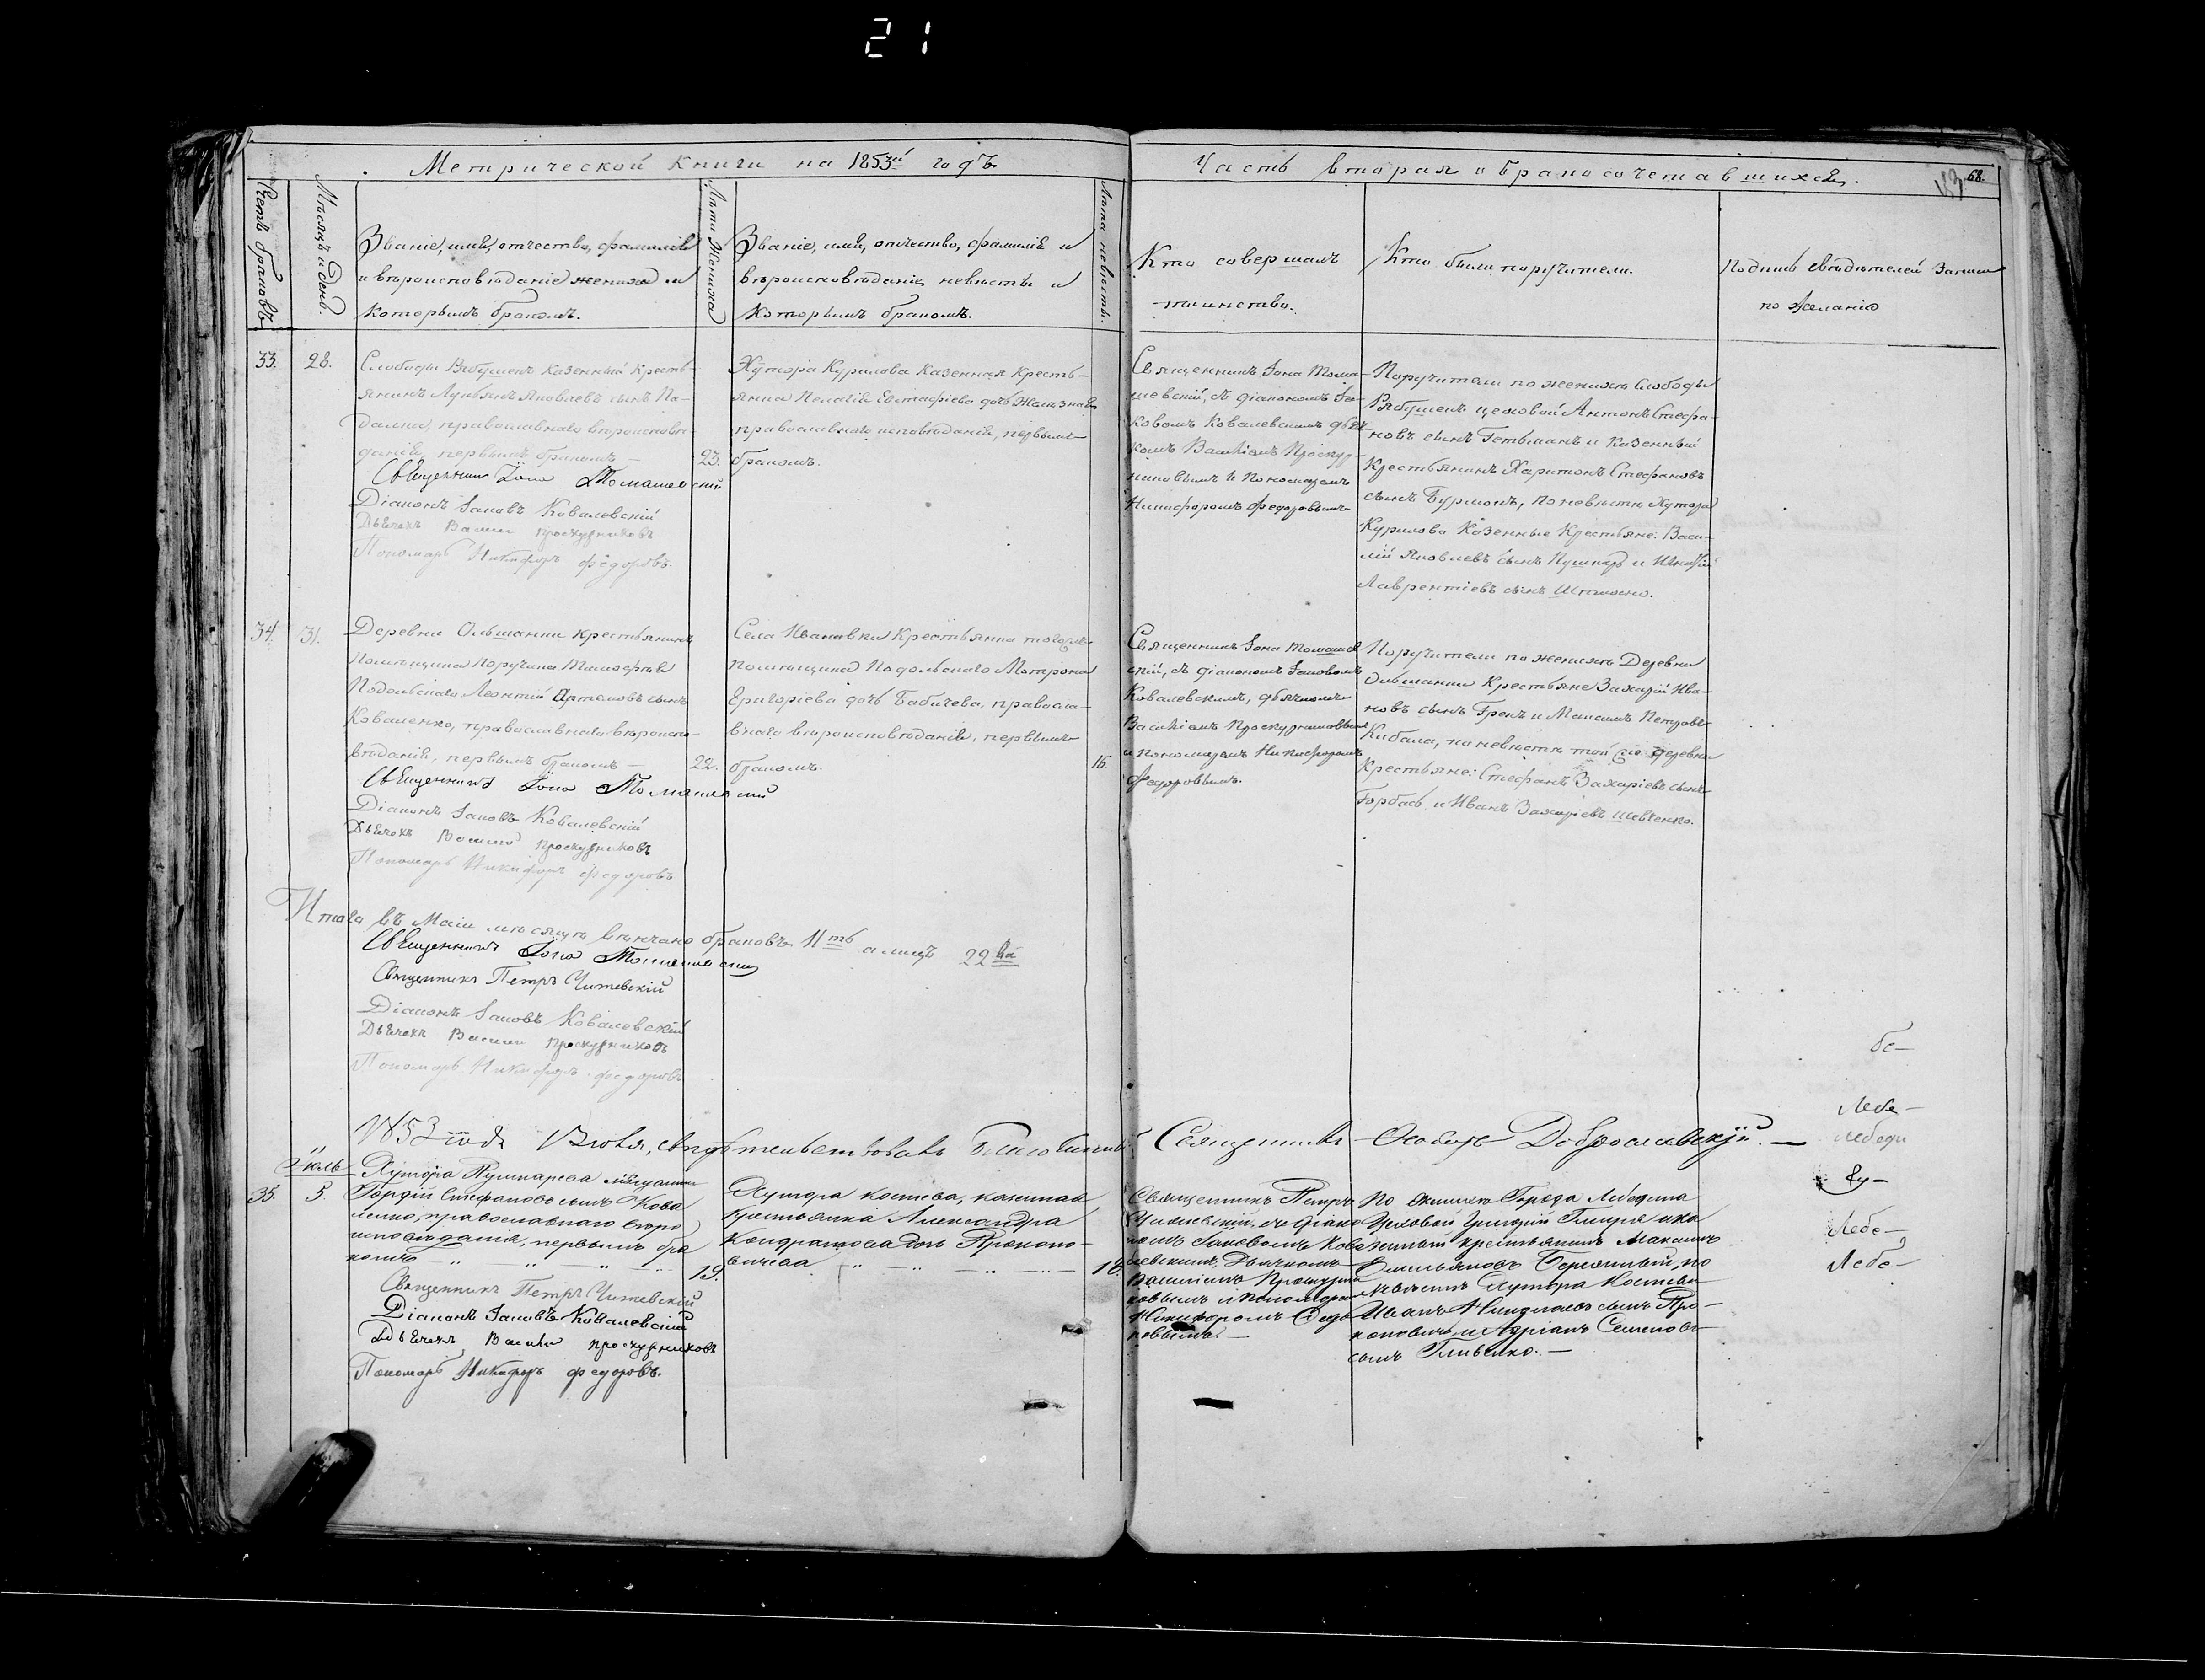 21
Метрической книги на 1853й годъ
Часть вторая о бракосочетавшихся.
68.
Счетъ браковъ
Мѣсяцъ и день.
Званіе, имя, отчество, фамилія
и вѣроисповѣданіе жениха и
которымъ бракомъ.
Лѣта жениха
Званіе, имя, отчество, фамилія и
вѣроисповѣданіе невѣсты и
которымъ бракомъ.
Лѣта невѣсты.
Кто совершалъ
таинство.
Кто были поручители.
Подпись свидѣтелей записи
по желанію
33. 28.
Слободы Рябушекъ казенный кресть-
янинъ Лукьянъ Яковлевъ сынъ Па-
далка, православнаго вѣроисповѣ-
данія, первымъ бракомъ —
23.
Священникъ Іона Томашевскій
Діаконъ Іаковъ Ковалевскій
Дьячекъ Василій Проскурниковъ
Пономарь Никифоръ Федоровъ.
Хутора Курилова казенная кресть-
янка Пелагія Евстафіева дочь
православнаго исповѣданія, первымъ
бракомъ.
Священникъ Іона Тома-
шевскій, съ діакономъ Іа-
ковомъ Ковалевскимъ дьяч-
комъ Василіемъ Проскур-
никовымъ и пономаремъ
Никифоромъ Федоровымъ
Поручители по женихѣ Слободы
Рябушекъ цеховой Антонъ Стефа-
новъ сынъ Гетьманъ и казенный
крестьянинъ Харитонъ Стефановъ
сынъ Бурмокъ, по невѣстѣ Хутора
Курилова Казенные Крестьяне: Васи-
лій Яковлевъ сынъ Пушкарь и
Лаврентіевъ сынъ
34. 31.
Деревни Ольшанки крестьянинъ
помѣщика поручика Тимофея
Подольскаго Леонтій Артемовъ сынъ
Коваленко, православнаго вѣроиспо-
вѣданія, первымъ бракомъ —
22.
Священникъ Іона Томашевскій
Діаконъ Іаковъ Ковалевскій
Дьячекъ Василій Проскурниковъ
Пономарь Никифоръ Федоровъ
Села Ивановки Крестьянка тогоже
помѣщика Подольскаго Мотрона
Григоріева дочь Бабичева, правосла-
внаго вѣроисповѣданія, первымъ
бракомъ.
16
Священникъ Іона Томашев
скій, съ діакономъ Іаковомъ
Ковалевскимъ, дьячкомъ
Василіемъ Проскурниковымъ
и пономаремъ Никифоромъ
Федоровымъ.
Поручители по женихѣ Деревни
Ольшанки Крестьяне Захарій Ива-
новъ сынъ Грекъ и Максимъ Петровъ
Кибала, по невѣстѣ той же деревни
Крестьяне: Стефанъ Захаріевъ сынъ
Горбась и Иванъ Захаріевъ Шевченко.
Итого въ Маіи мѣсяцѣ вѣнчано браковъ 11ть а лицъ 22ва
Священникъ Іона Томашевскій
Священникъ Петръ Чижевскій
Діаконъ Іаковъ Ковалевскій
Дьячекъ Василій Проскурниковъ
Пономарь Никифоръ Федоровъ
1853 года Іюля, свидѣтельствовалъ Благочинный Священникъ Ѳеодоръ Доброславскій. —
бе—
Лебе—
лебеди
Ву—
Лебе—
Лебе—
Іюль
35. 5.
Хутора Пушкарева мѣщанинъ
Гордій Стефановъ сынъ Кова
ленко, православнаго вѣро
исповѣданія, первымъ бра
комъ
19.
Священникъ Петръ Чижевскій
Діаконъ Іаковъ Ковалевскій
Дьячекъ Василій Проскурниковъ
Пономарь Никифоръ Федоровъ.
Хутора Костева, казенная
крестьянка Александра
Кондратова дочь Прокопо-
вичева
18.
Священникъ Петръ
Чижевскій съ діако
номъ Іаковомъ Кова
левскимъ, Дьячкомъ
Василіемъ Проскурни
ковымъ и пономаремъ
Никифоромъ Федо
ровымъ. —
По женихѣ Города Лебедина
Цеховой Григорій и ка
зенный крестьянинъ Максимъ
Емельяновъ по
невѣстѣ Хутора Костева
Иванъ сынъ Про-
коповичъ и Адріанъ Семеновъ
сынъ —